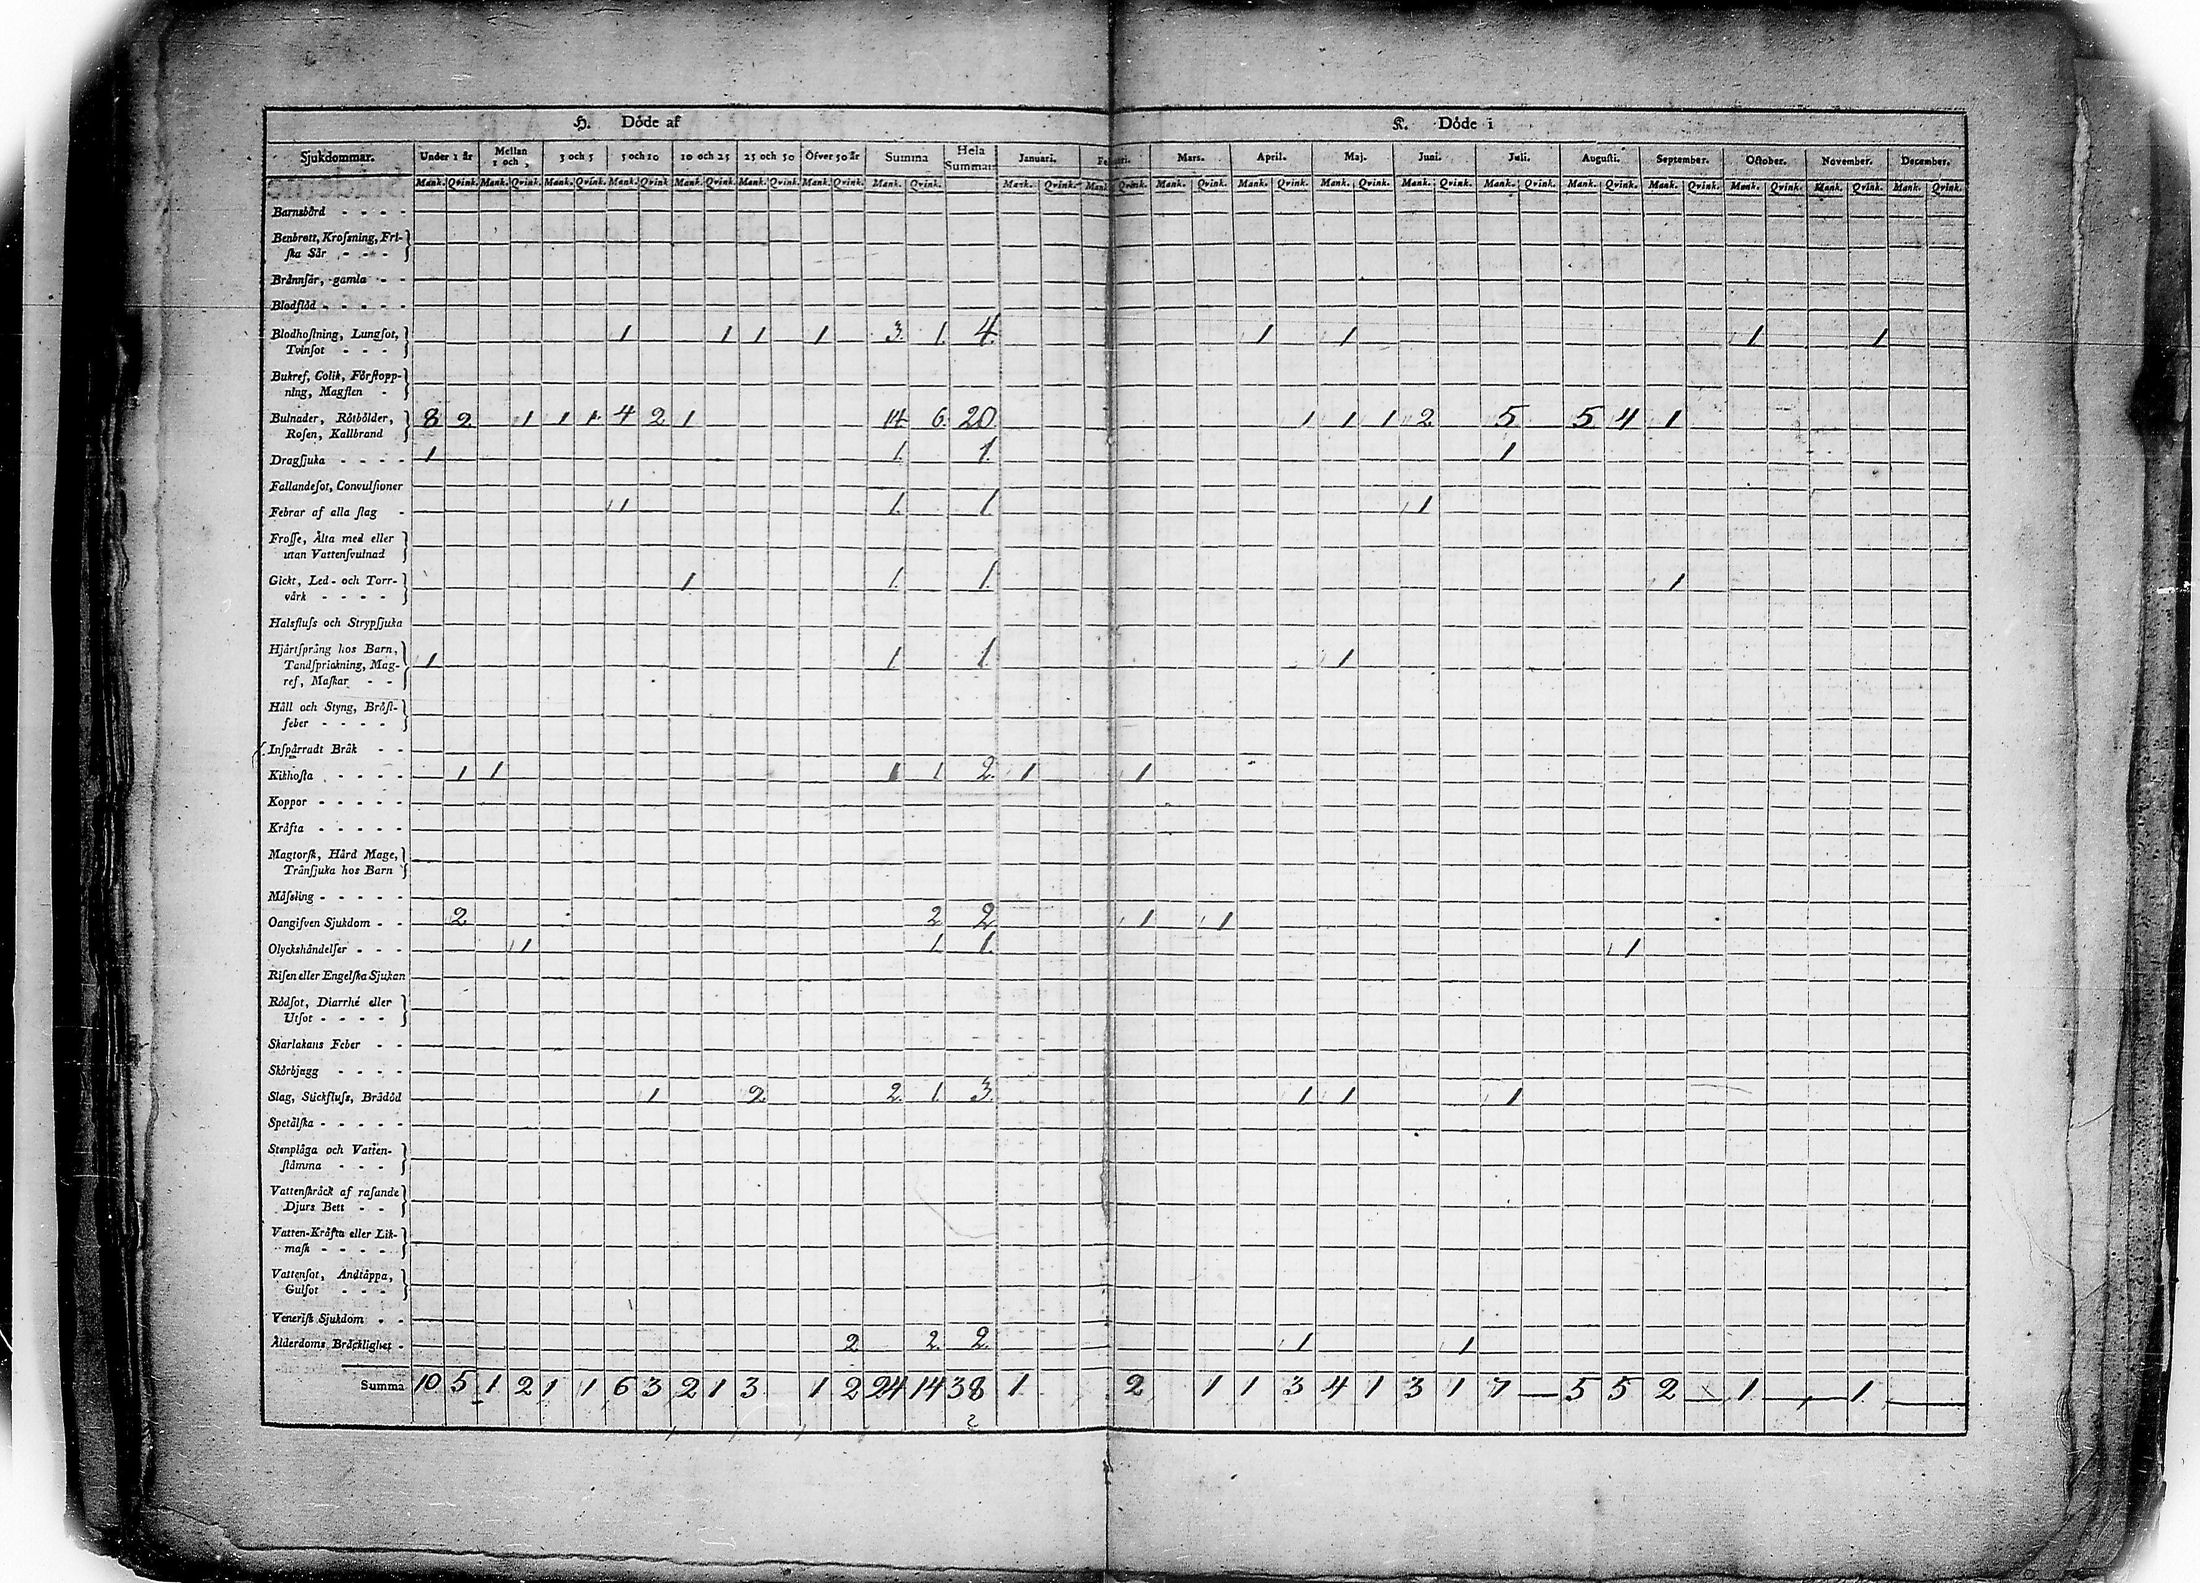 H. Döde af K. Döde i
Sjukdommar. Under 1 år Mellan 1 och 3 3 och 5 5 och 10 10 och 25 25 och 50 Öfver 50 år Summa Hela Summan Januari. Februari. Mars. April. Maj. Juni. Juli. Augusti. September. October. November. December.
Mank. Qvink. Mank. Qvink. Mank. Qvink. Mank. Qvink. Mank. Qvink. Mank. Qvink. Mank. Qvink. Mank. Qvink. Mank. Qvink. Mank. Qvink. Mank. Qvink. Mank. Qvink. Mank. Qvink. Mank. Qvink. Mank. Qvink. Mank. Qvink. Mank. Qvink. Mank. Qvink. Mank. Qvink. Mank. Qvink.
Barnsbörd - - - -
Benbrott, Krossning, Fri-
ska Sår - - -
Brännsår, gamla - -
Blodflöd - - - - -
Blodhostning, Lungsot, 1 1 1 1 3. 1. 4. 1 1 1 1
Tvinsot - - -
Bukref, Colik, Förstopp-
ning, Magsten -
Bulnader, Rötbölder, 8 2 1 1 1 4 2 1 14 6. 20. 1 1 1 2 5 5 4 1
Rosen, Kallbrand
Dragsjuka - - - - 1 1. 1. 1
Fallandesot, Convulsioner
Febrar af alla slag - 1 1. 1. 1
Frosse, Älta med eller
utan Vattensvulnad
Gickt, Led- och Torr- 1 1. 1. 1
värk - - - -
Halsfluss och Strypsjuka
Hjärtsprång hos Barn,
Tandsprickning, Mag- 1 1. 1. 1
ref, Maskar - -
Håll och Styng, Bröst-
feber - - - -
Inspärradt Bråk - -
Kikhosta - - - - 1 1 1 1 2. 1 1
Koppor - - - - -
Kräfta - - - - -
Magtorsk, Hård Mage,
Tränsjuka hos Barn
Mässling - - - - -
Oangifven Sjukdom - - 2. 2. 2. 1 1
Olyckshändelser - - - 1 1. 1. 1
Risen eller Engelska Sjukan
Rödsot, Diarrhé eller
Utsot - - - -
Skarlakans Feber - -
Skörbjugg - - - -
Slag, Stickfluss, Brådöd 1 2. 2. 1. 3. 1 1 1
Spetälska - - - - -
Stenplåga och Vatten-
stämma - - -
Vattenskräck af rasande
Djurs Bett - -
Vatten-Kräfta eller Lik-
mask - - - -
Vattensot, Andtäppa,
Gulsot - - -
Venerisk Sjukdom - -
Ålderdoms Bräcklighet - 2 2. 2. 1 1
Summa 10 5 1 2 1 1 6 3 2 1 3 1 2 24 14 38 1 2 1 1 3 4 1 3 1 7 — 5 5 2 — 1 — 1